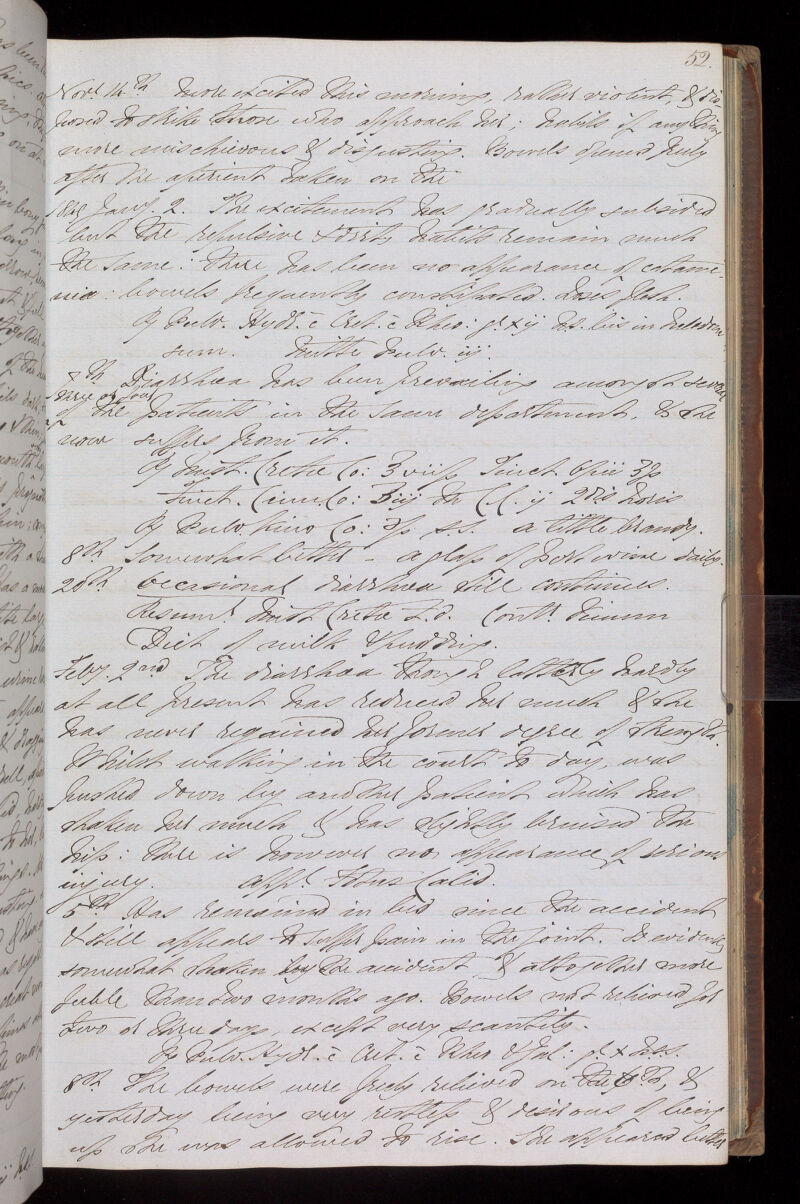 52.
Novr. 14th More excited this morning, rather violent, & dis-
posed to strike those who approach her; habits if anything
more mischievous & disgusting. Bowels opened freely
after the aperient taken on the
1848 Jany. 2. The excitement has gradually subsided
but the repulsive & dirty habits remain much
the same: there has been no appearance of catame-
nia: bowels frequently constipated. Loses flesh.
℞ Pulv. Hydr. c̄ Cret. c̄ Rheo: gr xij h.s. bis in hebdom:
sum. Mitte Pulv. iij.
7th Diarrhœa has been prevailing amongst several
three or four
of the patients in the same department, & she
now suffers from it.
℞ Mist. Cretæ Co: ℥viiſs Tinct. Opii ʒſs
Tinct. Cinn. Co: ʒij 2dis horis
℞ Pulv. Kino Co: ℈ſs s.s. a little brandy.
8th Somewhat better – a glass of port wine daily.
20th Occasional diarrhœa still continues.
Resumr. Mist Cretæ s.d. Contr. Vinum
Diet of milk & pudding.
Feby. 2nd The diarrhœa though latterly hardly
at all present has reduced her much & she
has never regained her former degree of strength.
Whilst walking in the court to day, was
pushed down by another patient which has
shaken her much & has slightly bruised the
hip: there is however no appearance of serious
injury. appr. Fotus Calid.
5th Has remained in bed since the accident
& still appears to suffer pain in the joint. Is evidently
somewhat shaken by the accident & altogether more
feeble than two months ago. Bowels not relieved for
two or three days, except very scantily.
℞ Pulv. Hydr. c̄ Cret. c̄ Rheo & Jal: gr. x h.s.s.
8th The bowels were freely relieved on the 6th, &
yesterday being very restless & desirous of being
up she was allowed to rise. She appeared better